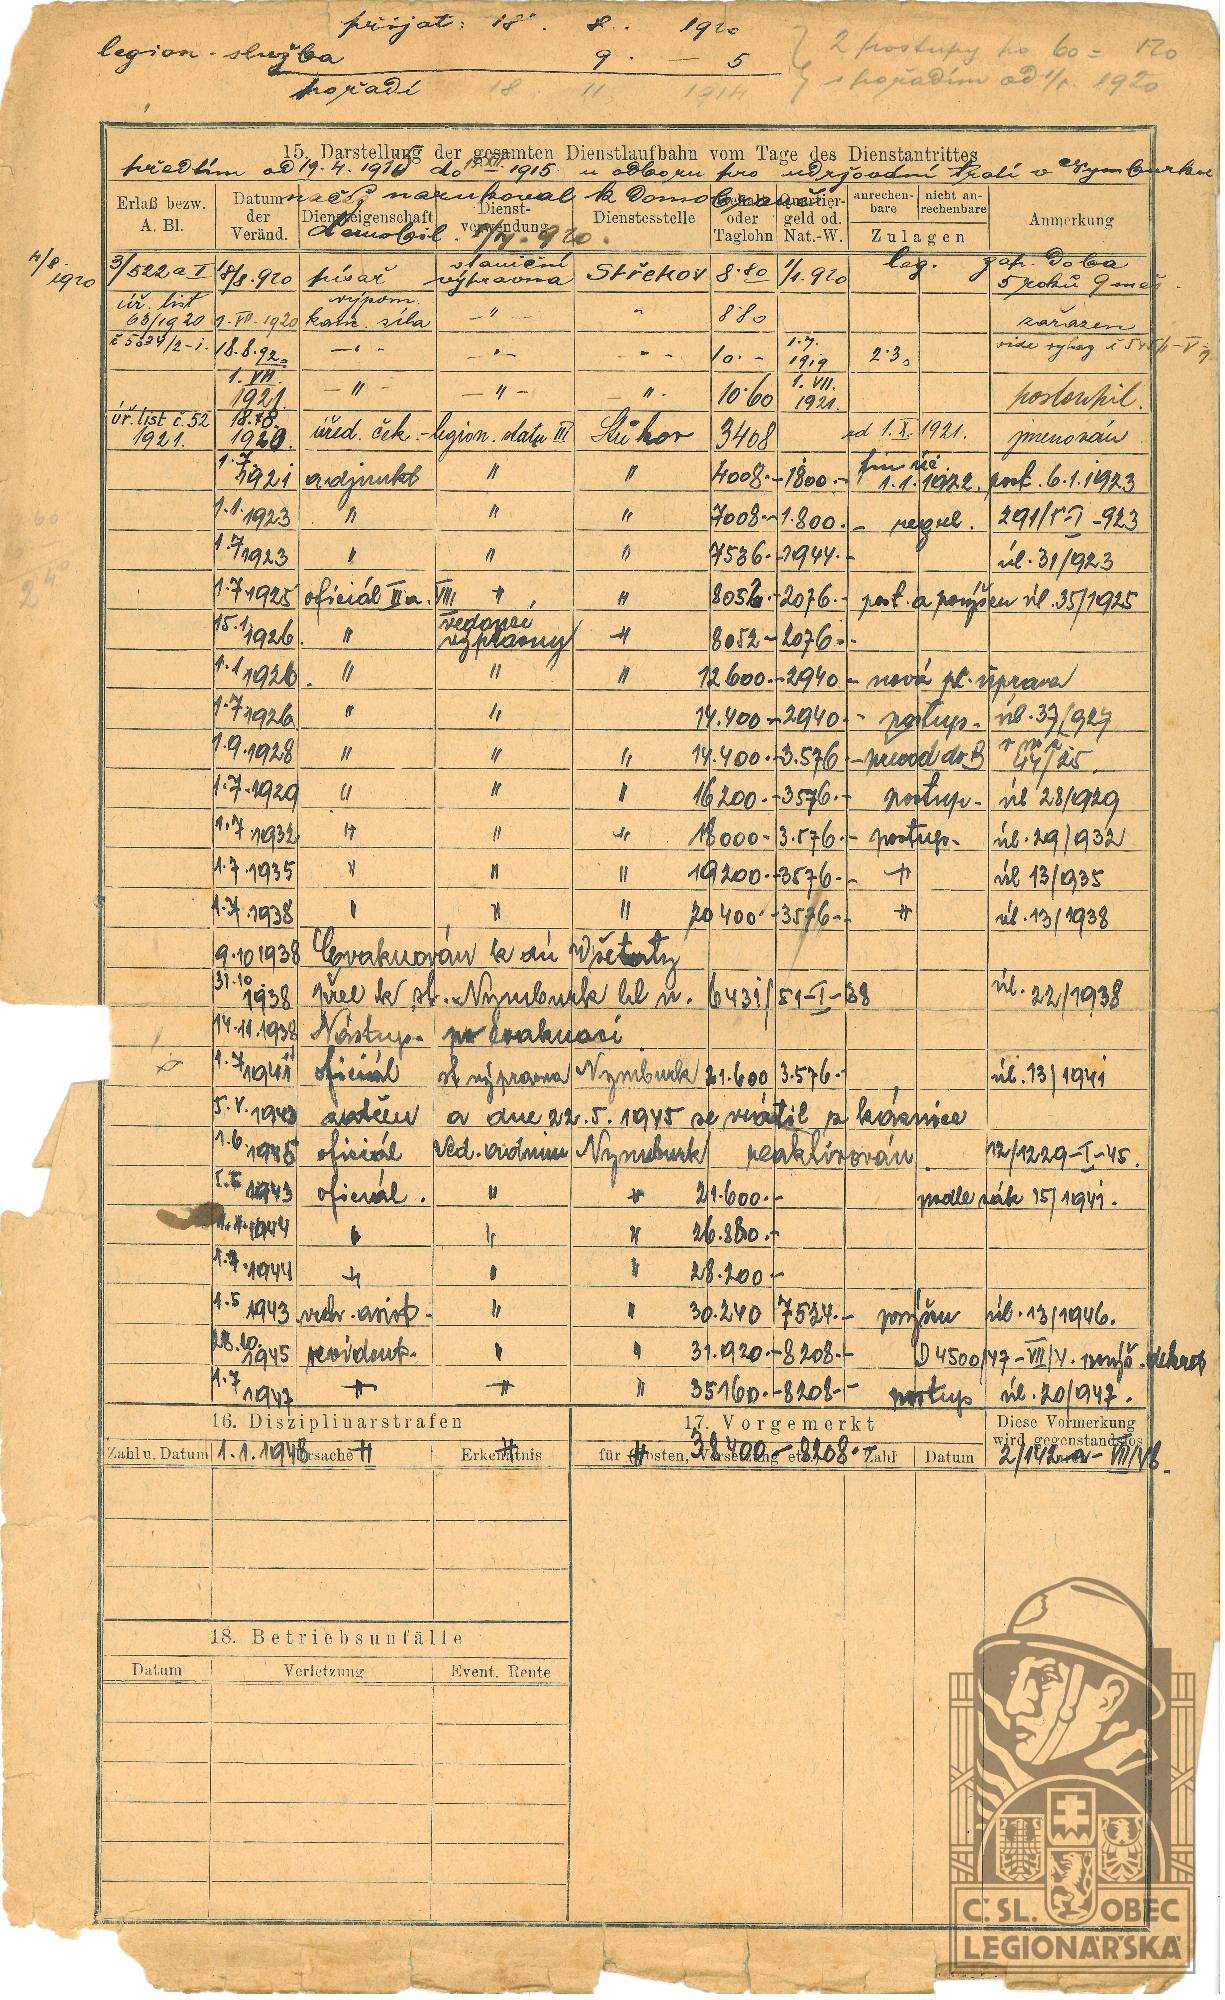 přijat: 18. 8. 1920
legion. služba 9. — 5
2 postupy po 60 = 120
pořadí 18 11 1914
s pořadím od 1/1. 1920
15. Darstellung der gesamten Dienstlaufbahn vom Tage des Dienstantrittes
předtím od 19. 4. do XII. 1915 u odboru pro udržování trati v Nymburku
načež narukoval k Domobraně
Erlaß bezw. A. Bl.
Datum der Veränd.
Diensteigenschaft
Dienst-verwendung
Dienstesstelle
oder Taglohn
Quartier-geld od. Nat.-W.
anrechen-bare
nicht an-rechenbare
Zulagen
Anmerkung
Demobil. 1/7. 920.
4/8. 1920
3/522 a I 18/8. 920 písař staniční výpravna Střekov 8·80 1/1. 920 leg. zap. doba 5 roků 9 měs.
úř. list 63/1920 1. VII. 1920 výpom. kanc. síla -"- " 8·80 zařazen
18.8.920 -"- -"- -"- 10.- 1.7. 1919 2·30 vide
1. VII. 1921. -"- -"- " 10·60 1. VII. 1921. postoupil.
úř. list č. 52 1921. 18.8. 1920. úřed. ček. legion. statu III Střekov 3408 od 1. X. 1921. jmenován
1.7. 1921 adjunkt " " 4008.- 1800.- 1.1.1922. post. 6.1.1923
1.1. 1923 " " " 7008.- 1.800.- 291/V-I-923
1.7 1923 " " " 7536.- 1944.- úl. 31/923
1.7. 1925 oficiál II a. VIII " " 8052.- 2076.- post. a povýšen úl. 35/1925
15.1. 1926. " vedoucí výpravny " 8052.- 2076.-
1.1 1926. " " " 12600.- 2940.- nová pl. úprava
1.7 1926. " " " 14.400.- 2940.- postup. úl. 37/927
1.9.1928 " " " 14.400.- 3.576.- převod do B 44/25.
1.7.1929 " " " 16200.- 3576.- postup. úl 28/1929
1.7.1932 " " " 18000.- 3.576.- postup. úl. 29/932
1.7.1935 " " " 19200.- 3576.- " úl 13/1935
1.7.1938 " " " 20400.- 3576.- " úl. 13/1938
9.10 1938 Evakuován k dú Všetaty
31.10. 1938 přel k st. Nymburk čl. n. 6431/51-I-38 úl. 22/1938
14.11.1938 Nástup. po evakuaci
1.7 1941 oficiál st výpravna Nymburk 21.600 3.576.- úl. 13/1941
5.V. 1943 zatčen a dne 22.5.1945 se vrátil z káznice
1.6. 1945 oficiál Nymburk reaktivován. 12/1229-I-45.
1.5 1943 oficiál. " " 21.600.- podle zák 15/1941.
1.1.1944 " " " 26.880.-
1.7.1944 " " " 28.200.-
1.5 1943 vrch. asist. " " 30.240 7524.- povýšen úl. 13/1946.
28.10. 1945 revident. " " 31.920.- 8208.- D 4500/47-VII/4. povýš. dekret
1.7 1947 " " " 35160.- 8208.- postup úl. 20/1947.
16. Disziplinarstrafen
17. Vorgemerkt
Diese Vormerkung wird gegenstandslos
Zahl u. Datum
Ursache
Erkenntnis
für Posten, Versetzung etc.
Zahl
Datum
1.1.1948 " " " 38400.- 8208.- 2/142-a-VIII/48.
18. Betriebsunfälle
Datum
Verletzung
Event. Rente
Č. SL. OBEC
LEGIONÁŘSKÁ